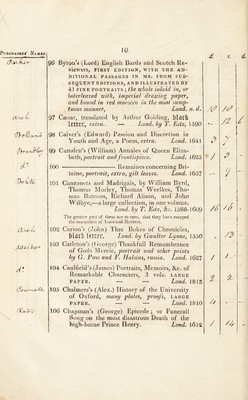 PURCHASERS' NAMES.
10
£ s. d.
96 Byron's (Lord) English Bards and Scotch Re-
viewers, FIRST EDITION, WITH THE AD-
DITIONAL PASSAGES IN MS. FROM SUB-
SEQUENT EDITIONS, AND ILLUSTRATED BY
41 FINE PORTRAITS; the whole inlaid in, or
interleaved with, imperial drawing paper,
and bound in red morocco in the most sump-
tuous manner, Lond. n. d.
10 10 -
97 Cæsar, translated by Arthur Golding, black
letter, extra. — Lond. by T. Este, 1590
- 12 6
98 Calver's (Edward) Passion and Discretion in
Youth and Age, a Poem, extra. Lond. 1641
3 7 -
99 Camden's (William) Annales of Queen Eliza-
beth, portrait and frontispiece. Lond. 1625
- 3 -
100 ——— Remains concerning Bri-
taine, portrait, extra, gilt leaves. Lond. 1657
- 1 -
101 Canzonets and Madrigals, by William Byrd,
Thomas Morley, Thomas Weelkes, Tho-
mas Bateson, Richard Alison, and John
Wilbye,—a large collection, in one volume.
Lond. by T. Este, &c. 1588-1609
16 16 -
The greater part of these are so rare, that they have escaped
the researches of Ames and Herbert.
102 Carion's (John) Thre Bokes of Chronicles,
black letter. Lond. by Gwalter Lynne, 1550
- 13 -
103 Carleton's (George) Thankfull Remembrance
of Gods Mercie, portrait and other prints
by G. Pass and F. Hulsius, russia. Lond. 1627
1 1 -
104 Caulfield's (James) Portraits, Memoirs, &c. of
Remarkable Characters, 3 vols. LARGE
PAPER. — — Lond. 1813
2 2 -
105 Chalmers's (Alex.) History of the University
of Oxford, many plates, proofs, LARGE
PAPER. — — Lond. 1810
106 Chapman's (George) Epicede; or Funerall
Song on the most disastrous Death of the
high-borne Prince Henry. Lond. 1612
1 14 -